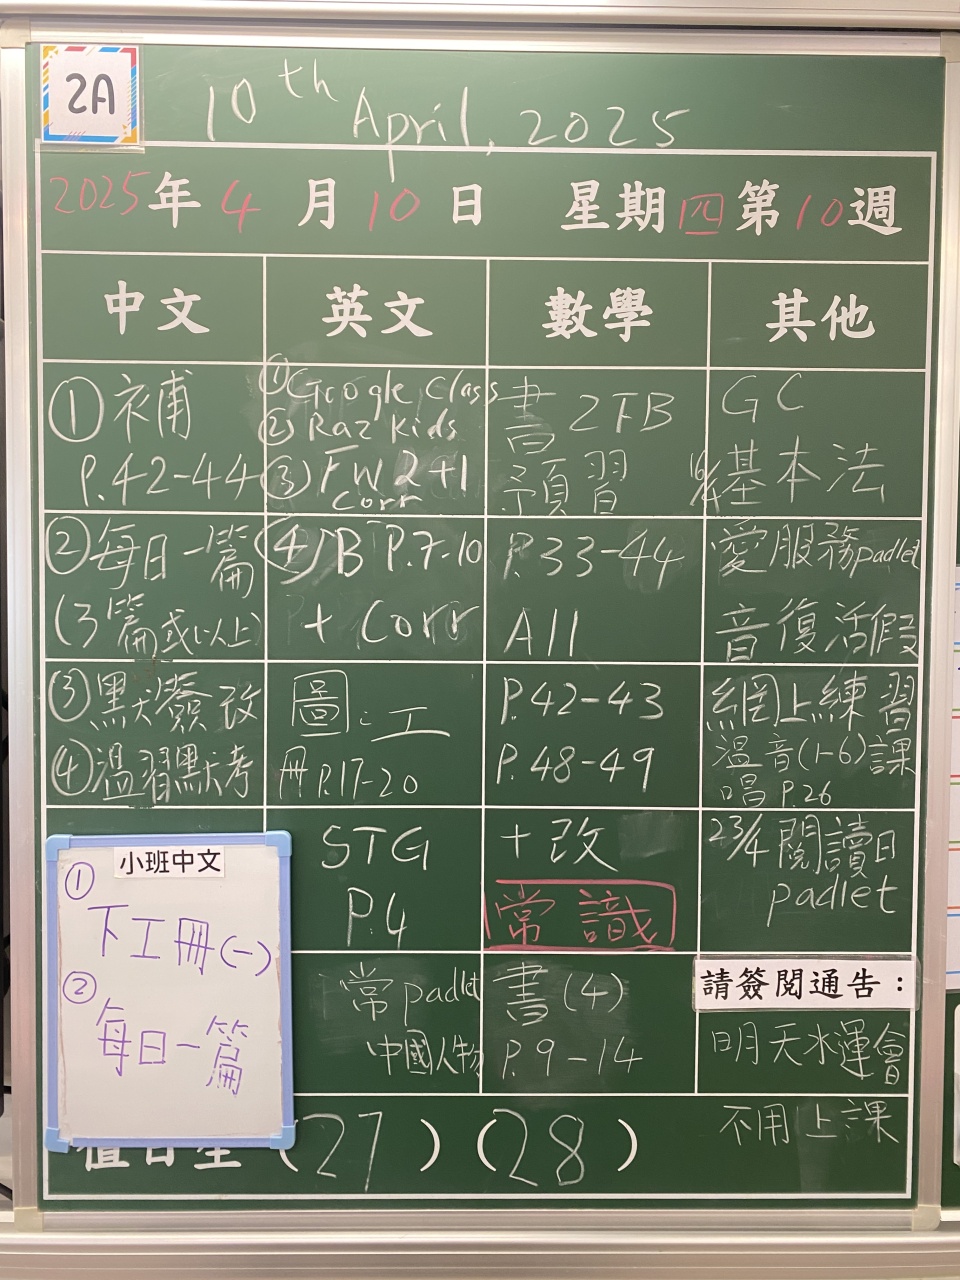 2A
10th April, 2025
2025年4月10日 星期四第10週
中文
英文
數學
其他
①補
P.42-44
②每日一篇
(3篇或以上)
③默簽改
④溫習默考
①Google Class
②Raz Kids
③FW2+1
Corr
④JB P.7-10
+ Corr
圖:工
冊P.17-20
STG
P.4
常padlet
中國人物
書2FB
預習
P.33-44
All
P.42-43
P.48-49
+改
常識
書(4)
P.9-14
GC
16/4基本法
愛服務padlet
音復活假
網上練習
溫音(1-6)課
唱P.26
23/4閱讀日
padlet
請簽閱通告:
明天水運會
不用上課
小班中文
①
下工冊(一)
②
每日一篇
值日生(27)(28)